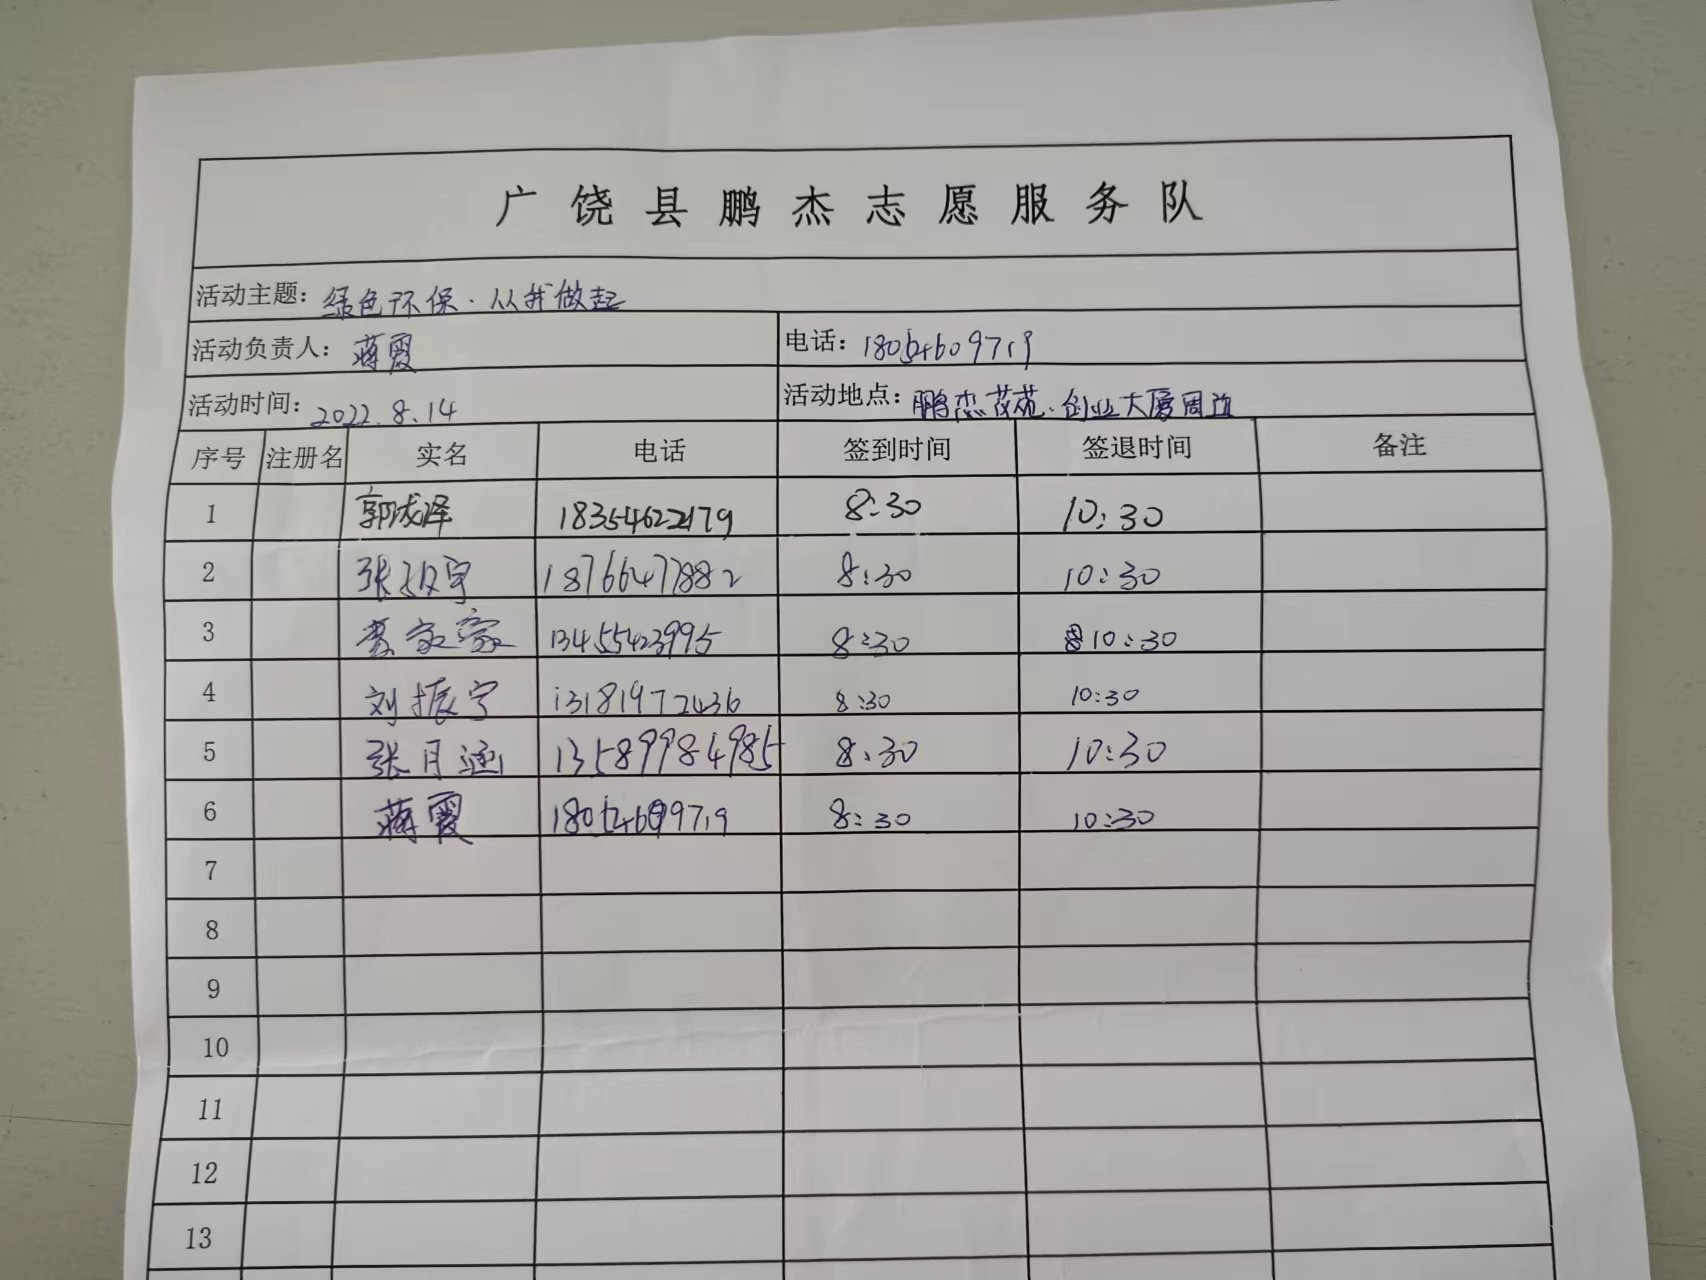 广饶县鹏杰志愿服务队
活动主题：绿色环保·从我做起
活动负责人：蒋霞 电话：18054609719
活动时间：2022.8.14 活动地点：鹏杰茂苑、创业大厦周边
序号 注册名 实名 电话 签到时间 签退时间 备注
1 郭成泽 18354622179 8:30 10:30
2 张 宇 18766477882 8:30 10:30
3 家豪 13455423995 8:30 10:30
4 刘振宁 13181972436 8:30 10:30
5 张月涵 13589984985 8:30 10:30
6 蒋霞 18054609719 8:30 10:30
7
8
9
10
11
12
13